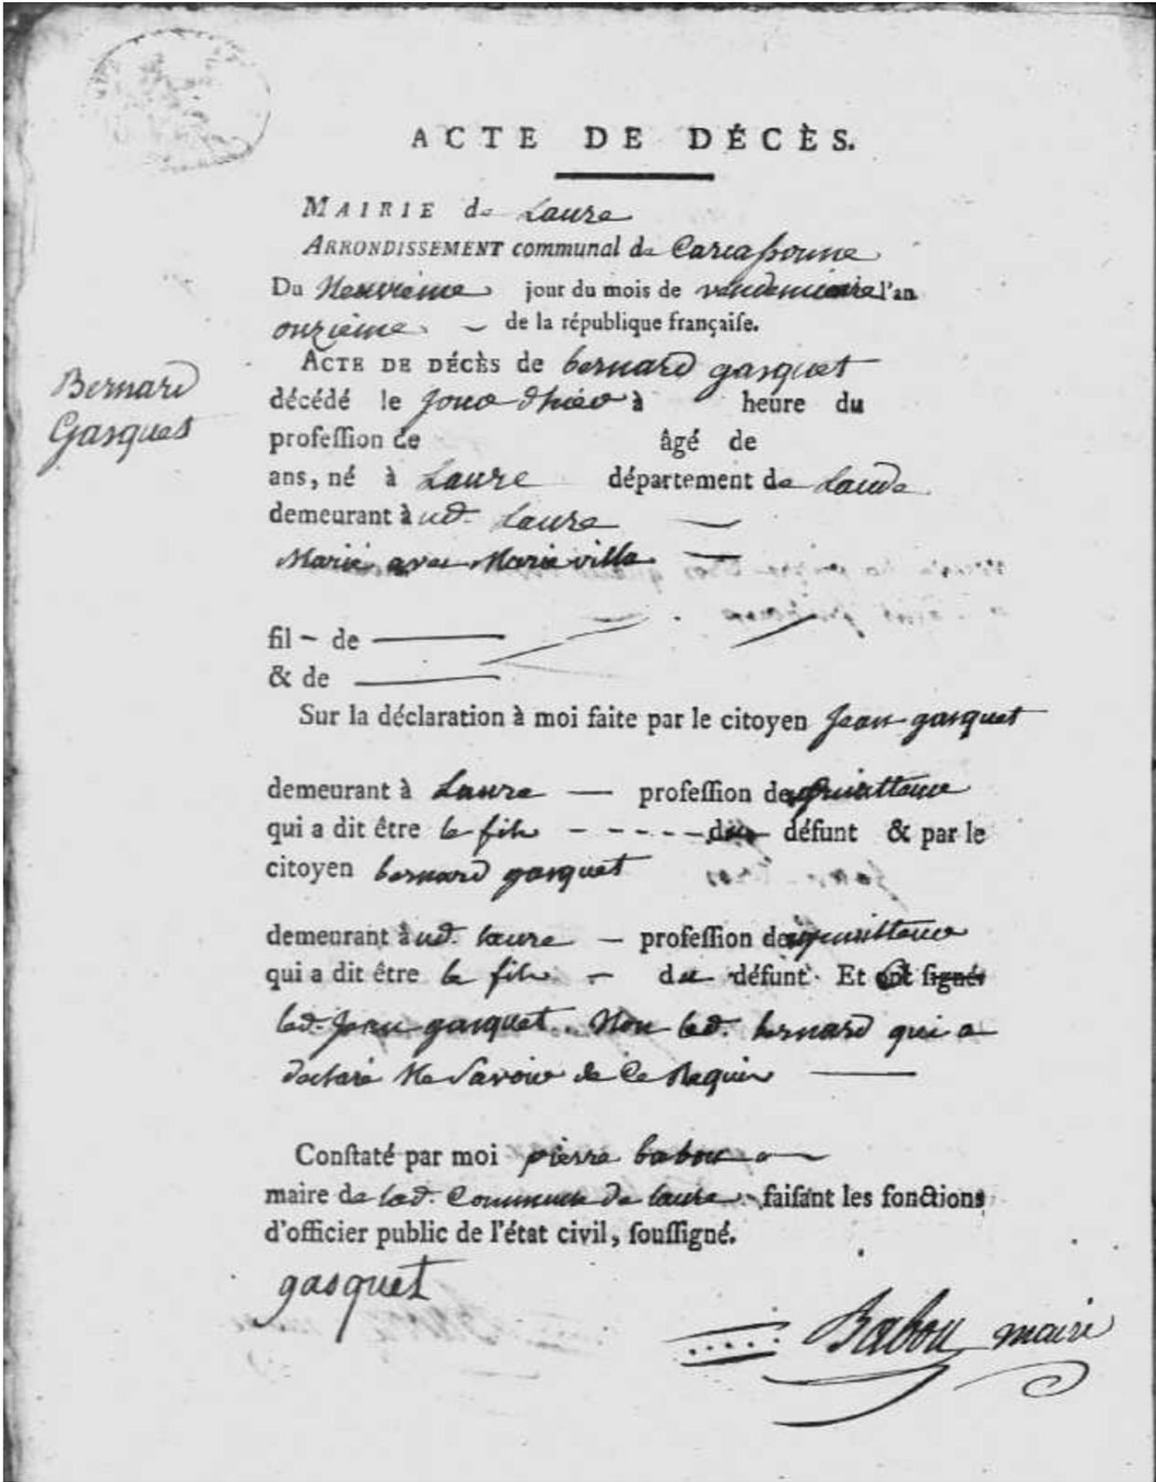 ACTE DE DÉCÈS.
MAIRIE de Laure
ARRONDISSEMENT communal de Carcassonne
Du Neuvieme jour du mois de vendemiaire l'an
onzieme de la république françaiſe.
ACTE DE DÉCÈS de bernard gasquet
Bernard
Gasquet
décédé le jour d'hier à heure du
profeſſion de âgé de
ans, né à Laure département de Laude
demeurant à ud. Laure
Marié avec Marie villa
fil - de
& de
Sur la déclaration à moi faite par le citoyen Jean gasquet
demeurant à Laure — profeſſion de
qui a dit être le fils - - - - - du défunt & par le
citoyen bernard gasquet
demeurant à ud. laure — profeſſion de
qui a dit être le fils - du défunt. Et ſignés
led. Jean gasquet. Non led. bernard qui a
declaré Ne Savoir de Ce Requis
Conſtaté par moi pierre babou
maire de lad. Commune de laure faiſant les fonctions
d'officier public de l'état civil, ſouſſigné.
gasquet
Babou maire